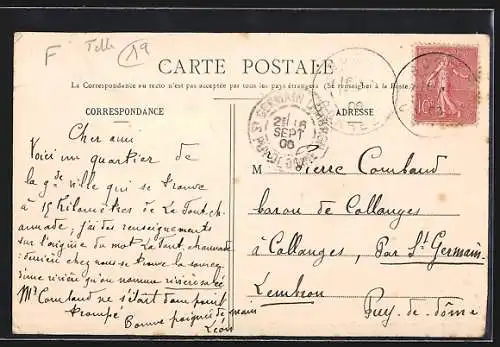 F Telle 19
CARTE POSTALE
La Correspondance au recto n'est pas acceptée par tous les pays étrangers (Se renseigner à la Poste)
CORRESPONDANCE
ADRESSE
ST GERMAIN LEMBRON
21 SEPT 06
PUY DE DOME
10c
Cher ami
Voici un quartier de
la gde ville qui se trouve
à 15 Kilomètres de La Font ch
armade, j'ai des renseignements
sur l'origine du mot La Font, chaumade
derrière chez nous se trouve la source
d'une rivière qu'on nomme
Mr Combaud ne s'était donc point
trompé Bonne poignée de main
Léon
M Pierre Combaud
baron de Collanges
à Collanges, Par St Germain
Lembron Puy-de-dôme